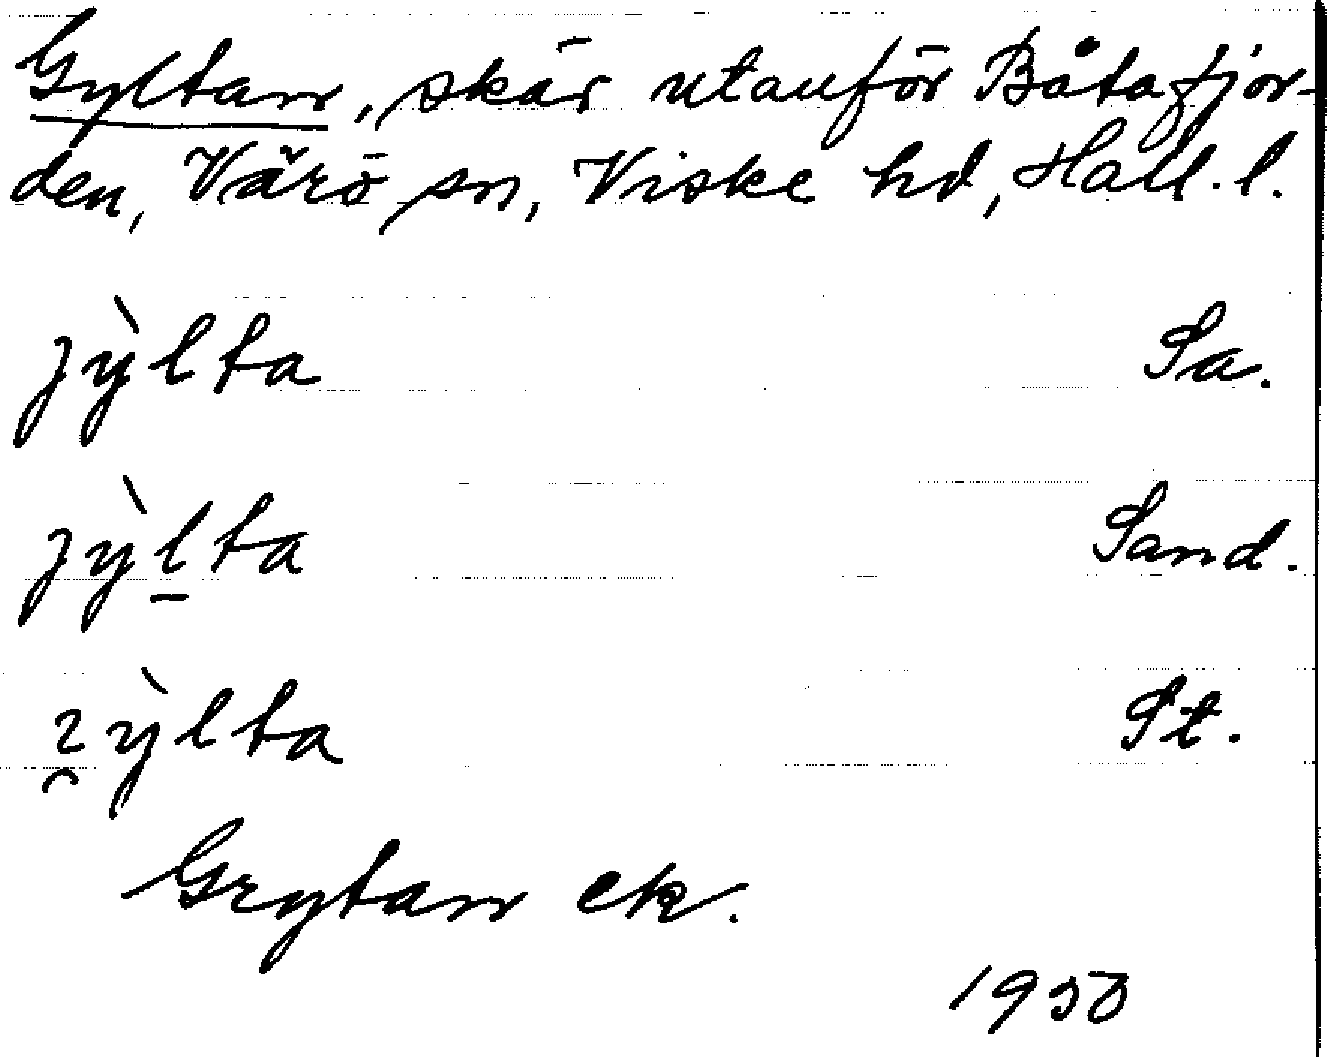 Gyltan, skär utanför Båtafjor-
den, Värö sn, Viske hd, Hall. l.
jỳlta Sa.
jỳl̲ta Sand.
ɿ̯ỳlta St.
Grytan ek.
1950